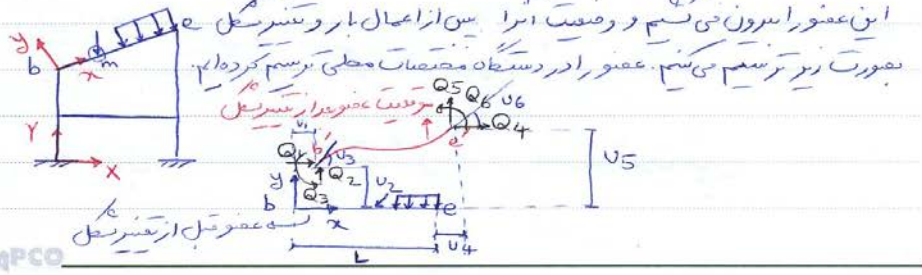 این عضو را بیرون می کشیم و وضعیت آنرا پس از اعمال بار و تغییر شکل
بصورت زیر ترسیم می کنیم. عضو را در دستگاه مختصات محلی ترسیم کرده ایم.
y
e
b
x
m
Y
X
موقعیت عضو بعد از تغییر شکل
Q5 Q6 U6
Q4
e'
U5
U1
b'
U3
Q1
Q2
Q3
U2
y
b
x
e
U4
L
عضو قبل از تغییر شکل
PCO